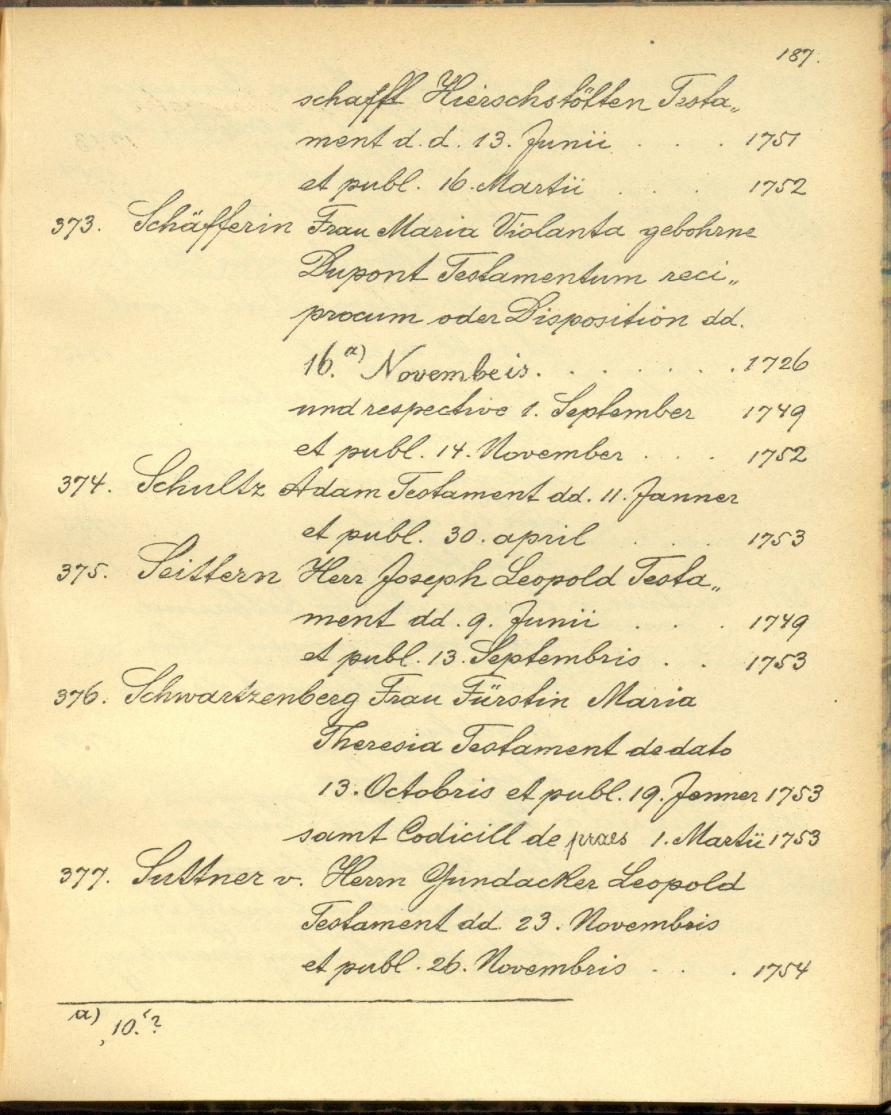 187.
schafft Hierschstötten Testa„
ment d. d. 13. Junii . . . 1751
et publ. 16. Martii . . . 1752
373. Schäfferin Frau Maria Violanta gebohrne
Dupont Testamentum reci„
procum oder Disposition dd.
16.a) Novembeis . . . . . . 1726
und respective 1. September 1749
et publ. 14. November . . . 1752
374. Schultz Adam Testament dd. 11. Janner
et publ. 30. april . . . 1753
375. Seittern Herr Joseph Leopold Testa„
ment dd. 9. Junii . . . 1749
et publ. 13. Septembris . . 1753
376. Schwartzenberg Frau Fürstin Maria
Theresia Testament de dato
13. Octobris et publ. 19. Jenner 1753
samt Codicill de praes 1. Martii 1753
377. Suttner v. Herrn Gundacker Leopold
Testament dd. 23. Novembris
et publ. 26. Novembris . . . 1754
a) ‚10.‘?